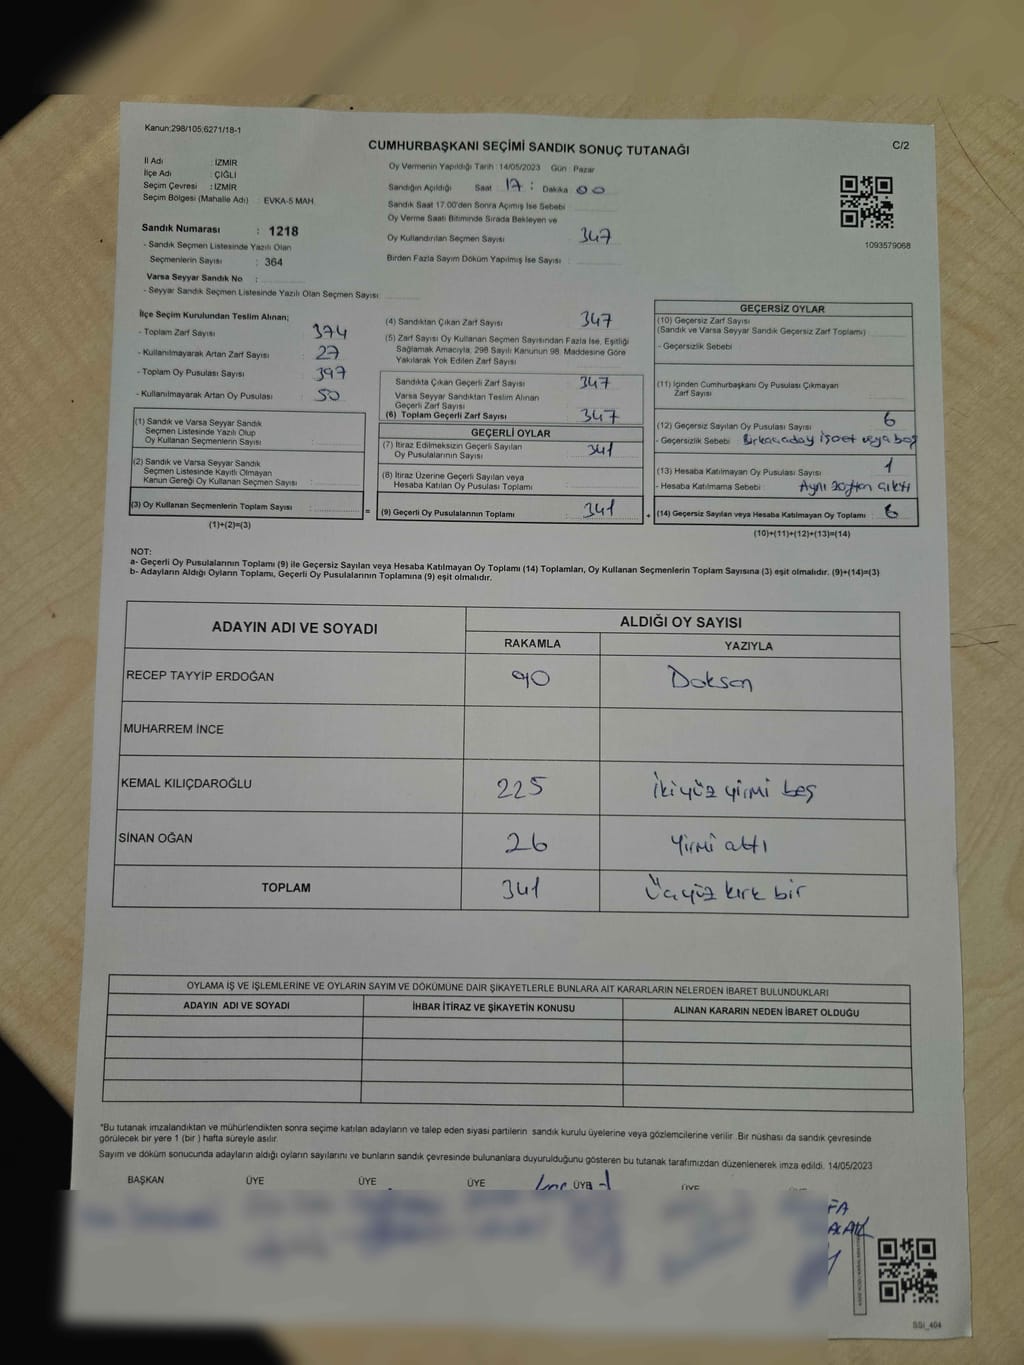 Kanun:298/105;6271/18-1
CUMHURBAŞKANI SEÇİMİ SANDIK SONUÇ TUTANAĞI
C/2
İl Adı : İZMİR
İlçe Adı : ÇİĞLİ
Seçim Çevresi : İZMİR
Seçim Bölgesi (Mahalle Adı) : EVKA-5 MAH.
Sandık Numarası : 1218
- Sandık Seçmen Listesinde Yazılı Olan
Seçmenlerin Sayısı : 364
Varsa Seyyar Sandık No :
- Seyyar Sandık Seçmen Listesinde Yazılı Olan Seçmen Sayısı:
Oy Vermenin Yapıldığı Tarih : 14/05/2023 Gün : Pazar
Sandığın Açıldığı Saat 17 : Dakika 00
Sandık Saat 17:00'den Sonra Açılmış İse Sebebi
Oy Verme Saati Bitiminde Sırada Bekleyen ve
Oy Kullandırılan Seçmen Sayısı 347
Birden Fazla Sayım Döküm Yapılmış İse Sayısı :
1093579068
İlçe Seçim Kurulundan Teslim Alınan;
- Toplam Zarf Sayısı : 374
- Kullanılmayarak Artan Zarf Sayısı : 27
- Toplam Oy Pusulası Sayısı : 397
- Kullanılmayarak Artan Oy Pusulası : 50
(1) Sandık ve Varsa Seyyar Sandık
Seçmen Listesinde Yazılı Olup
Oy Kullanan Seçmenlerin Sayısı :
(2) Sandık ve Varsa Seyyar Sandık
Seçmen Listesinde Kayıtlı Olmayan
Kanun Gereği Oy Kullanan Seçmen Sayısı :
(3) Oy Kullanan Seçmenlerin Toplam Sayısı :
(1)+(2)=(3)
=
(4) Sandıktan Çıkan Zarf Sayısı : 347
(5) Zarf Sayısı Oy Kullanan Seçmen Sayısından Fazla İse, Eşitliği
Sağlamak Amacıyla, 298 Sayılı Kanunun 98. Maddesine Göre
Yakılarak Yok Edilen Zarf Sayısı
Sandıkta Çıkan Geçerli Zarf Sayısı : 347
Varsa Seyyar Sandıktan Teslim Alınan
Geçerli Zarf Sayısı :
(6) Toplam Geçerli Zarf Sayısı : 347
GEÇERLİ OYLAR
(7) İtiraz Edilmeksizin Geçerli Sayılan
Oy Pusulalarının Sayısı : 341
(8) İtiraz Üzerine Geçerli Sayılan veya
Hesaba Katılan Oy Pusulası Toplamı :
(9) Geçerli Oy Pusulalarının Toplamı : 341
+
GEÇERSİZ OYLAR
(10) Geçersiz Zarf Sayısı
(Sandık ve Varsa Seyyar Sandık Geçersiz Zarf Toplamı)
- Geçersizlik Sebebi
(11) İçinden Cumhurbaşkanı Oy Pusulası Çıkmayan
Zarf Sayısı :
(12) Geçersiz Sayılan Oy Pusulası Sayısı : 6
- Geçersizlik Sebebi : Birkaç aday işaret veya boş
(13) Hesaba Katılmayan Oy Pusulası Sayısı : 1
- Hesaba Katılmama Sebebi : Aynı zarftan çıktı
(14) Geçersiz Sayılan veya Hesaba Katılmayan Oy Toplamı : 6
(10)+(11)+(12)+(13)=(14)
NOT:
a- Geçerli Oy Pusulalarının Toplamı (9) ile Geçersiz Sayılan veya Hesaba Katılmayan Oy Toplamı (14) Toplamları, Oy Kullanan Seçmenlerin Toplam Sayısına (3) eşit olmalıdır. (9)+(14)=(3)
b- Adayların Aldığı Oyların Toplamı, Geçerli Oy Pusulalarının Toplamına (9) eşit olmalıdır.
ADAYIN ADI VE SOYADI
ALDIĞI OY SAYISI
RAKAMLA YAZIYLA
RECEP TAYYİP ERDOĞAN 90 Doksan
MUHARREM İNCE
KEMAL KILIÇDAROĞLU 225 İkiyüz yirmi beş
SİNAN OĞAN 26 Yirmi altı
TOPLAM 341 Üçyüz kırk bir
OYLAMA İŞ VE İŞLEMLERİNE VE OYLARIN SAYIM VE DÖKÜMÜNE DAİR ŞİKAYETLERLE BUNLARA AİT KARARLARIN NELERDEN İBARET BULUNDUKLARI
ADAYIN ADI VE SOYADI İHBAR İTİRAZ VE ŞİKAYETİN KONUSU ALINAN KARARIN NEDEN İBARET OLDUĞU
*Bu tutanak imzalandıktan ve mühürlendikten sonra seçime katılan adayların ve talep eden siyasi partilerin sandık kurulu üyelerine veya gözlemcilerine verilir. Bir nüshası da sandık çevresinde
görülecek bir yere 1 (bir) hafta süreyle asılır.
Sayım ve döküm sonucunda adayların aldığı oyların sayılarını ve bunların sandık çevresinde bulunanlara duyurulduğunu gösteren bu tutanak tarafımızdan düzenlenerek imza edildi. 14/05/2023
BAŞKAN ÜYE ÜYE ÜYE ÜYE ÜYE
SSI_404